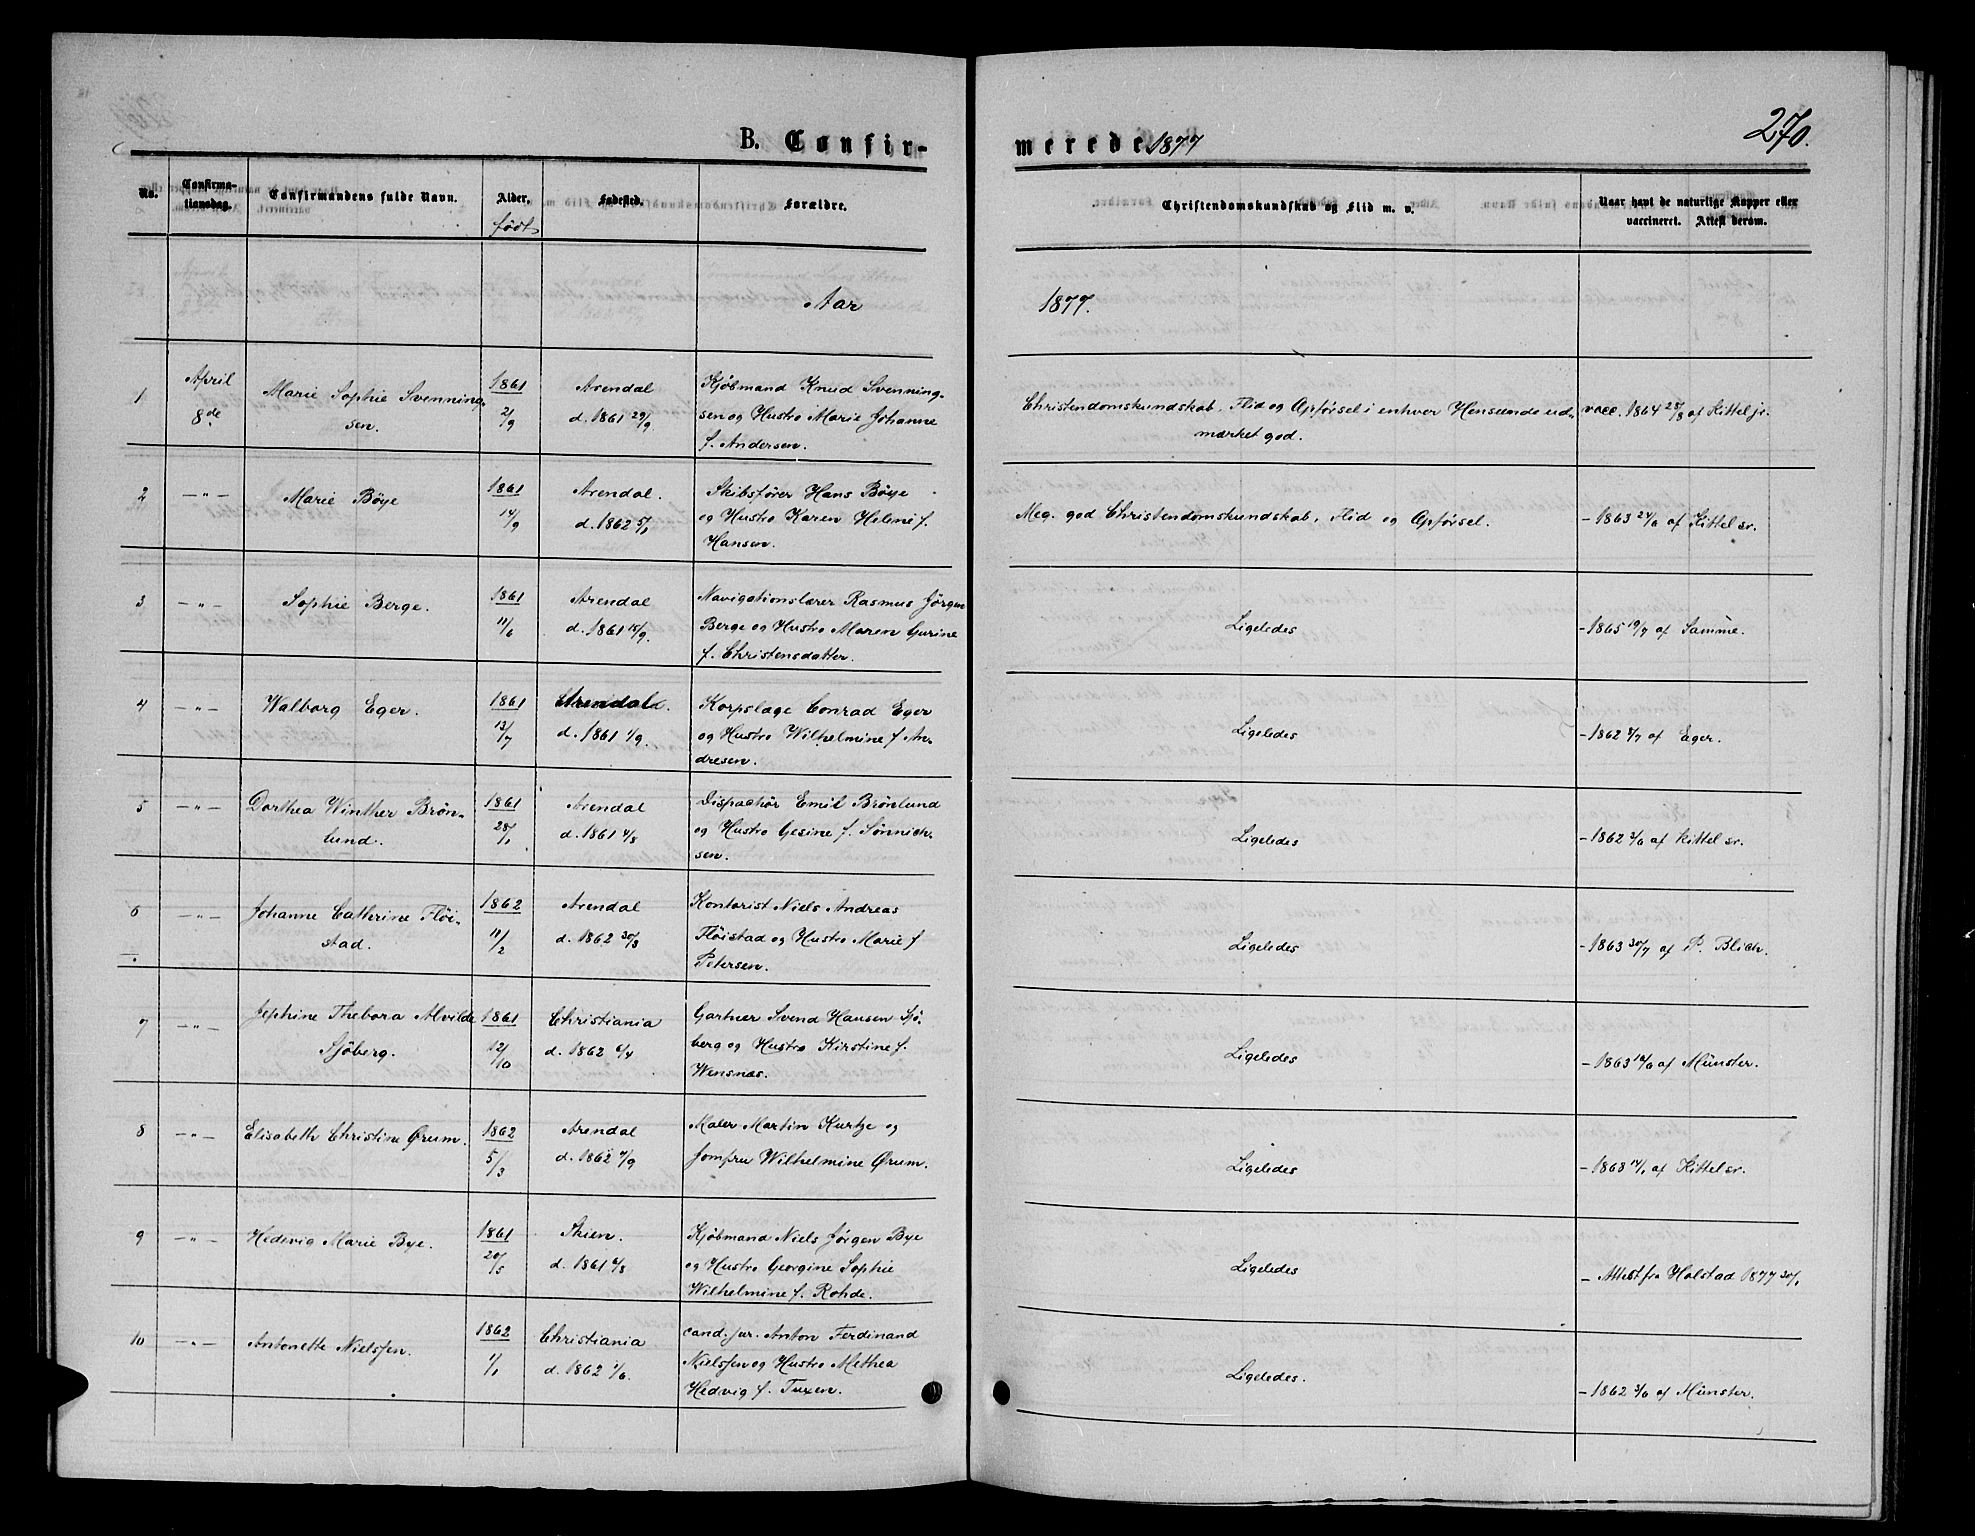 270.
B. Confir-
merede 1877
No.
Confirma-
tionsdag.
Confirmandens fulde Navn.
Alder.
født
Fødested.
Forældre.
Christendomskundskab og Flid m. v.
Naar havt de naturlige Kopper eller
vaccineret. Attest derom.
Aar
1877.
1
April
8de
Marie Sophie Svenning-
sen.
1861
2/9
Arendal
d. 1861 29/9
Kjøbmand Knud Svenning-
sen og Hustro Marie Johanne
f. Andersen.
Christendomskundskab, Flid og Opførsel i enhver Henseende ud-
mærket god.
vacc. 1864 25/8 af Kittel jr.
2
— " —
Marie Böye
1861
14/9
Arendal.
d. 1862 5/1
Skibsfører Hans Böye
og Hustro Karen Helene f.
Hansen.
Meg. god Christendomskundskab, Flid og Opførsel.
- 1863 24/6 af Kittel sr.
3
— " —
Sophie Berge.
1861
11/6
Arendal
d. 1861 15/9.
Navigationslærer Rasmus Jörgen
Berge og Hustro Maren Gurine
f. Christensdatter.
Ligeledes
- 1865 19/7 af Samme.
4
— " —
Walborg Eger.
1861
13/7
Arendal.
d. 1861 1/9.
Korpslæge Conrad Eger
og Hustro Wilhelmine f. An-
dresen.
Ligeledes
- 1862 7/7 af Eger.
5
— " —
Dorthea Winther Brøn-
lund.
1861
28/1
Arendal
d. 1861 4/8
Dispachør Emil Brønlund
og Hustro Gesine f. Sønnich-
sen.
Ligeledes
- 1862 3/6 af Kittel sr.
6
— " —
Johanne Cathrine Flöi-
stad.
1862
11/2
Arendal
d. 1862 30/3
Kontorist Niels Andreas
Flöistad og Hustro Marie f
Petersen.
Ligeledes
- 1863 30/7 af P. Blich.
7
— " —
Jephine Thebora Alvilde
Sjöberg.
1861
12/10
Christiania
d. 1862 6/4
Gartner Svend Hansen Sjö-
berg og Hustro Kirstine f.
Wensnæs.
Ligeledes
- 1863 10/6 af Münster.
8
— " —
Elisabeth Christine Ørum.
1862
5/3
Arendal
d. 1862 7/9
Maler Martin Kurtze og
Jomfru Wilhelmine Ørum.
Ligeledes
- 1868 14/1 af Kittel sr.
9
— " —
Hedevig Marie Bye.
1861
20/5
Skien.
d. 1861 4/8
Kjøbmand Niels Jørgen Bye
og Hustro Georgine Sophie
Wilhelmine f. Rohde.
Ligeledes
- Attest fra Holstad 1877 30/1
10
— " —
Antonette Nielssen.
1862
1/1
Christiania
d. 1862 1/6.
cand. jur. Anton Ferdinand
Nielssen og Hustro Methea
Hedvig f. Tuxen.
Ligeledes.
- 1862 3/6 af Münster.